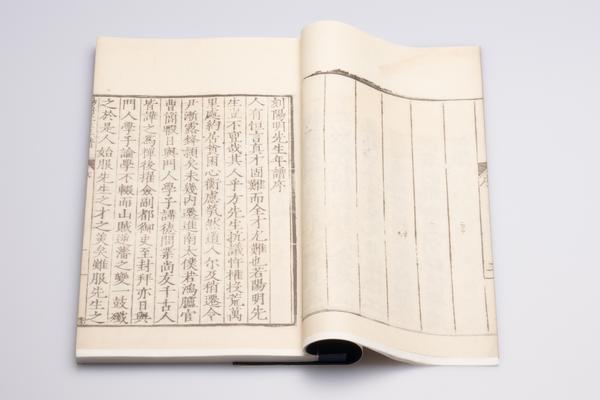 刻陽明先生年譜序
人有恒言真才固難而全才尤難也若陽明先
生豈不亶哉其人乎方先生抗議忤權投荒萬
里處約居貧困心衡慮煢然道人尔及稍遷令
尹漸露鋒穎矣未幾内遷進南太僕若鴻臚官
曹簡暇日與門人學子講德問業尚友千古人
皆譁之為禪後擢僉副都御史至封拜亦日與
門人學子論學不輟而山賊逆藩之變一鼓殲
之於是人始服先生之才之美矣雖服先生之